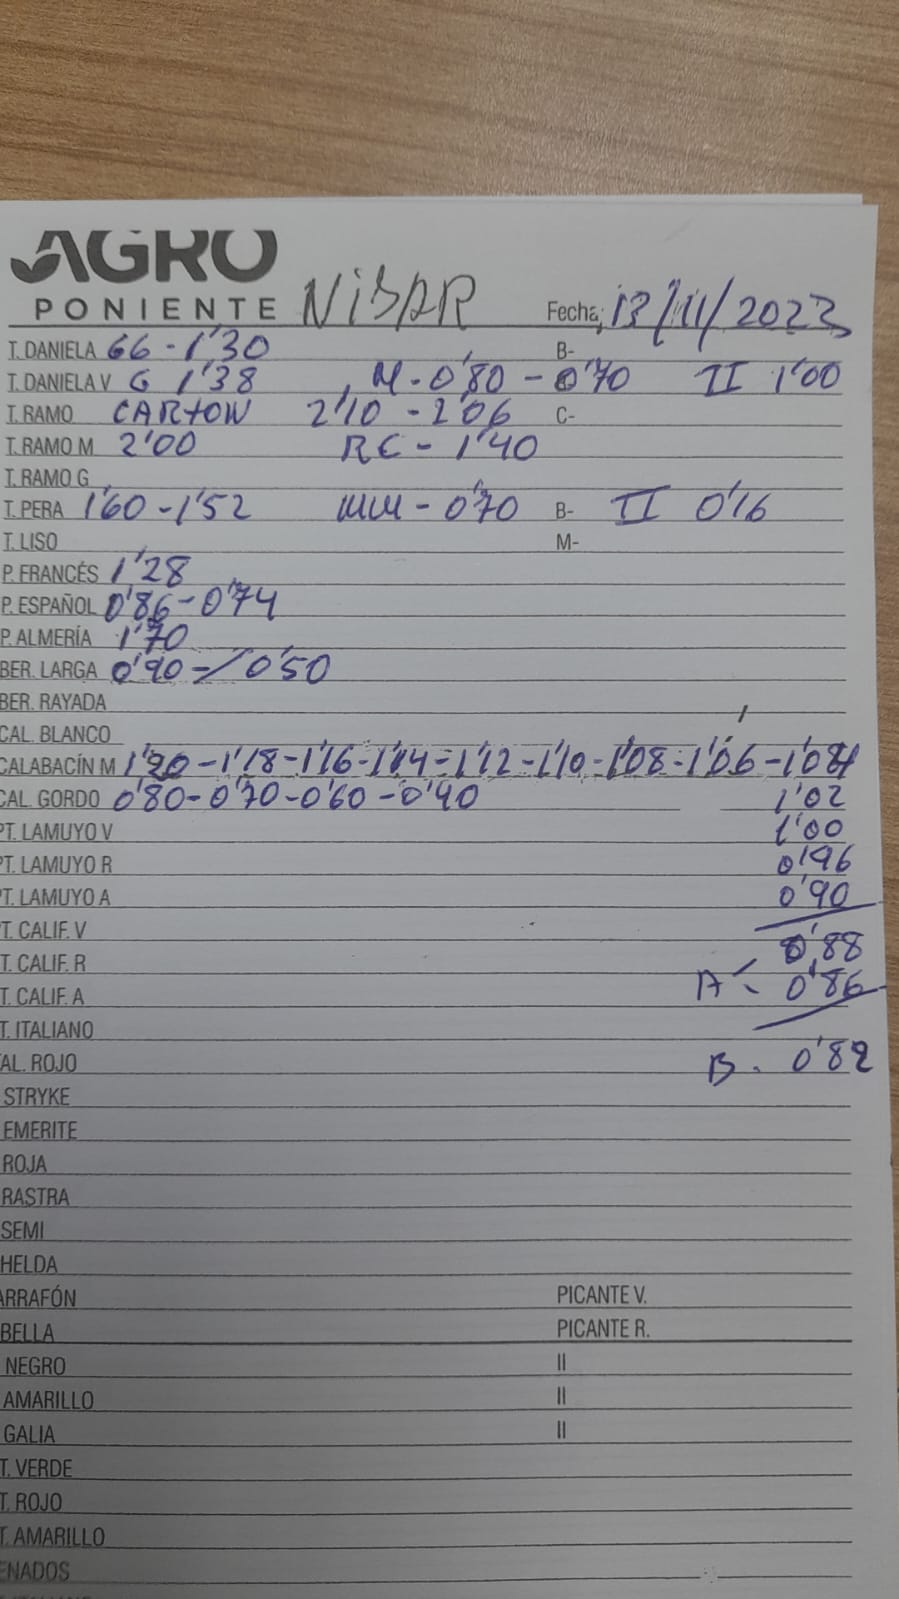 AGRO
PONIENTE NiJAR Fecha; 13/11/2023
T. DANIELA 66 - 1'30 B-
T. DANIELA V G 1'38 M - 0'80 - 0'70 II 1'00
T. RAMO CARTON 2'10 - 2'06 C-
T. RAMO M 2'00 RC - 1'40
T. RAMO G
T. PERA 1'60 - 1'52 MM - 0'70 B- II 0'16
T. LISO M-
P. FRANCÉS 1'28
P. ESPAÑOL 0'86 - 0'74
P. ALMERÍA 1'70
BER. LARGA 0'90 - / 0'50
BER. RAYADA
CAL. BLANCO
CALABACÍN M 1'20 - 1'18 - 1'16 - 1'14 - 1'12 - 1'10 - 1'08 - 1'06 - 1'04
CAL. GORDO 0'80 - 0'70 - 0'60 - 0'90 1'02
PT. LAMUYO V 1'00
PT. LAMUYO R 0'96
PT. LAMUYO A 0'90
T. CALIF. V 0'88
T. CALIF. R
A - 0'86
T. CALIF. A
T. ITALIANO
AL. ROJO B - 0'82
STRYKE
EMERITE
ROJA
RASTRA
SEMI
HELDA
ARRAFÓN PICANTE V.
BELLA PICANTE R.
NEGRO II
AMARILLO II
GALIA II
T. VERDE
T. ROJO
T. AMARILLO
ENADOS